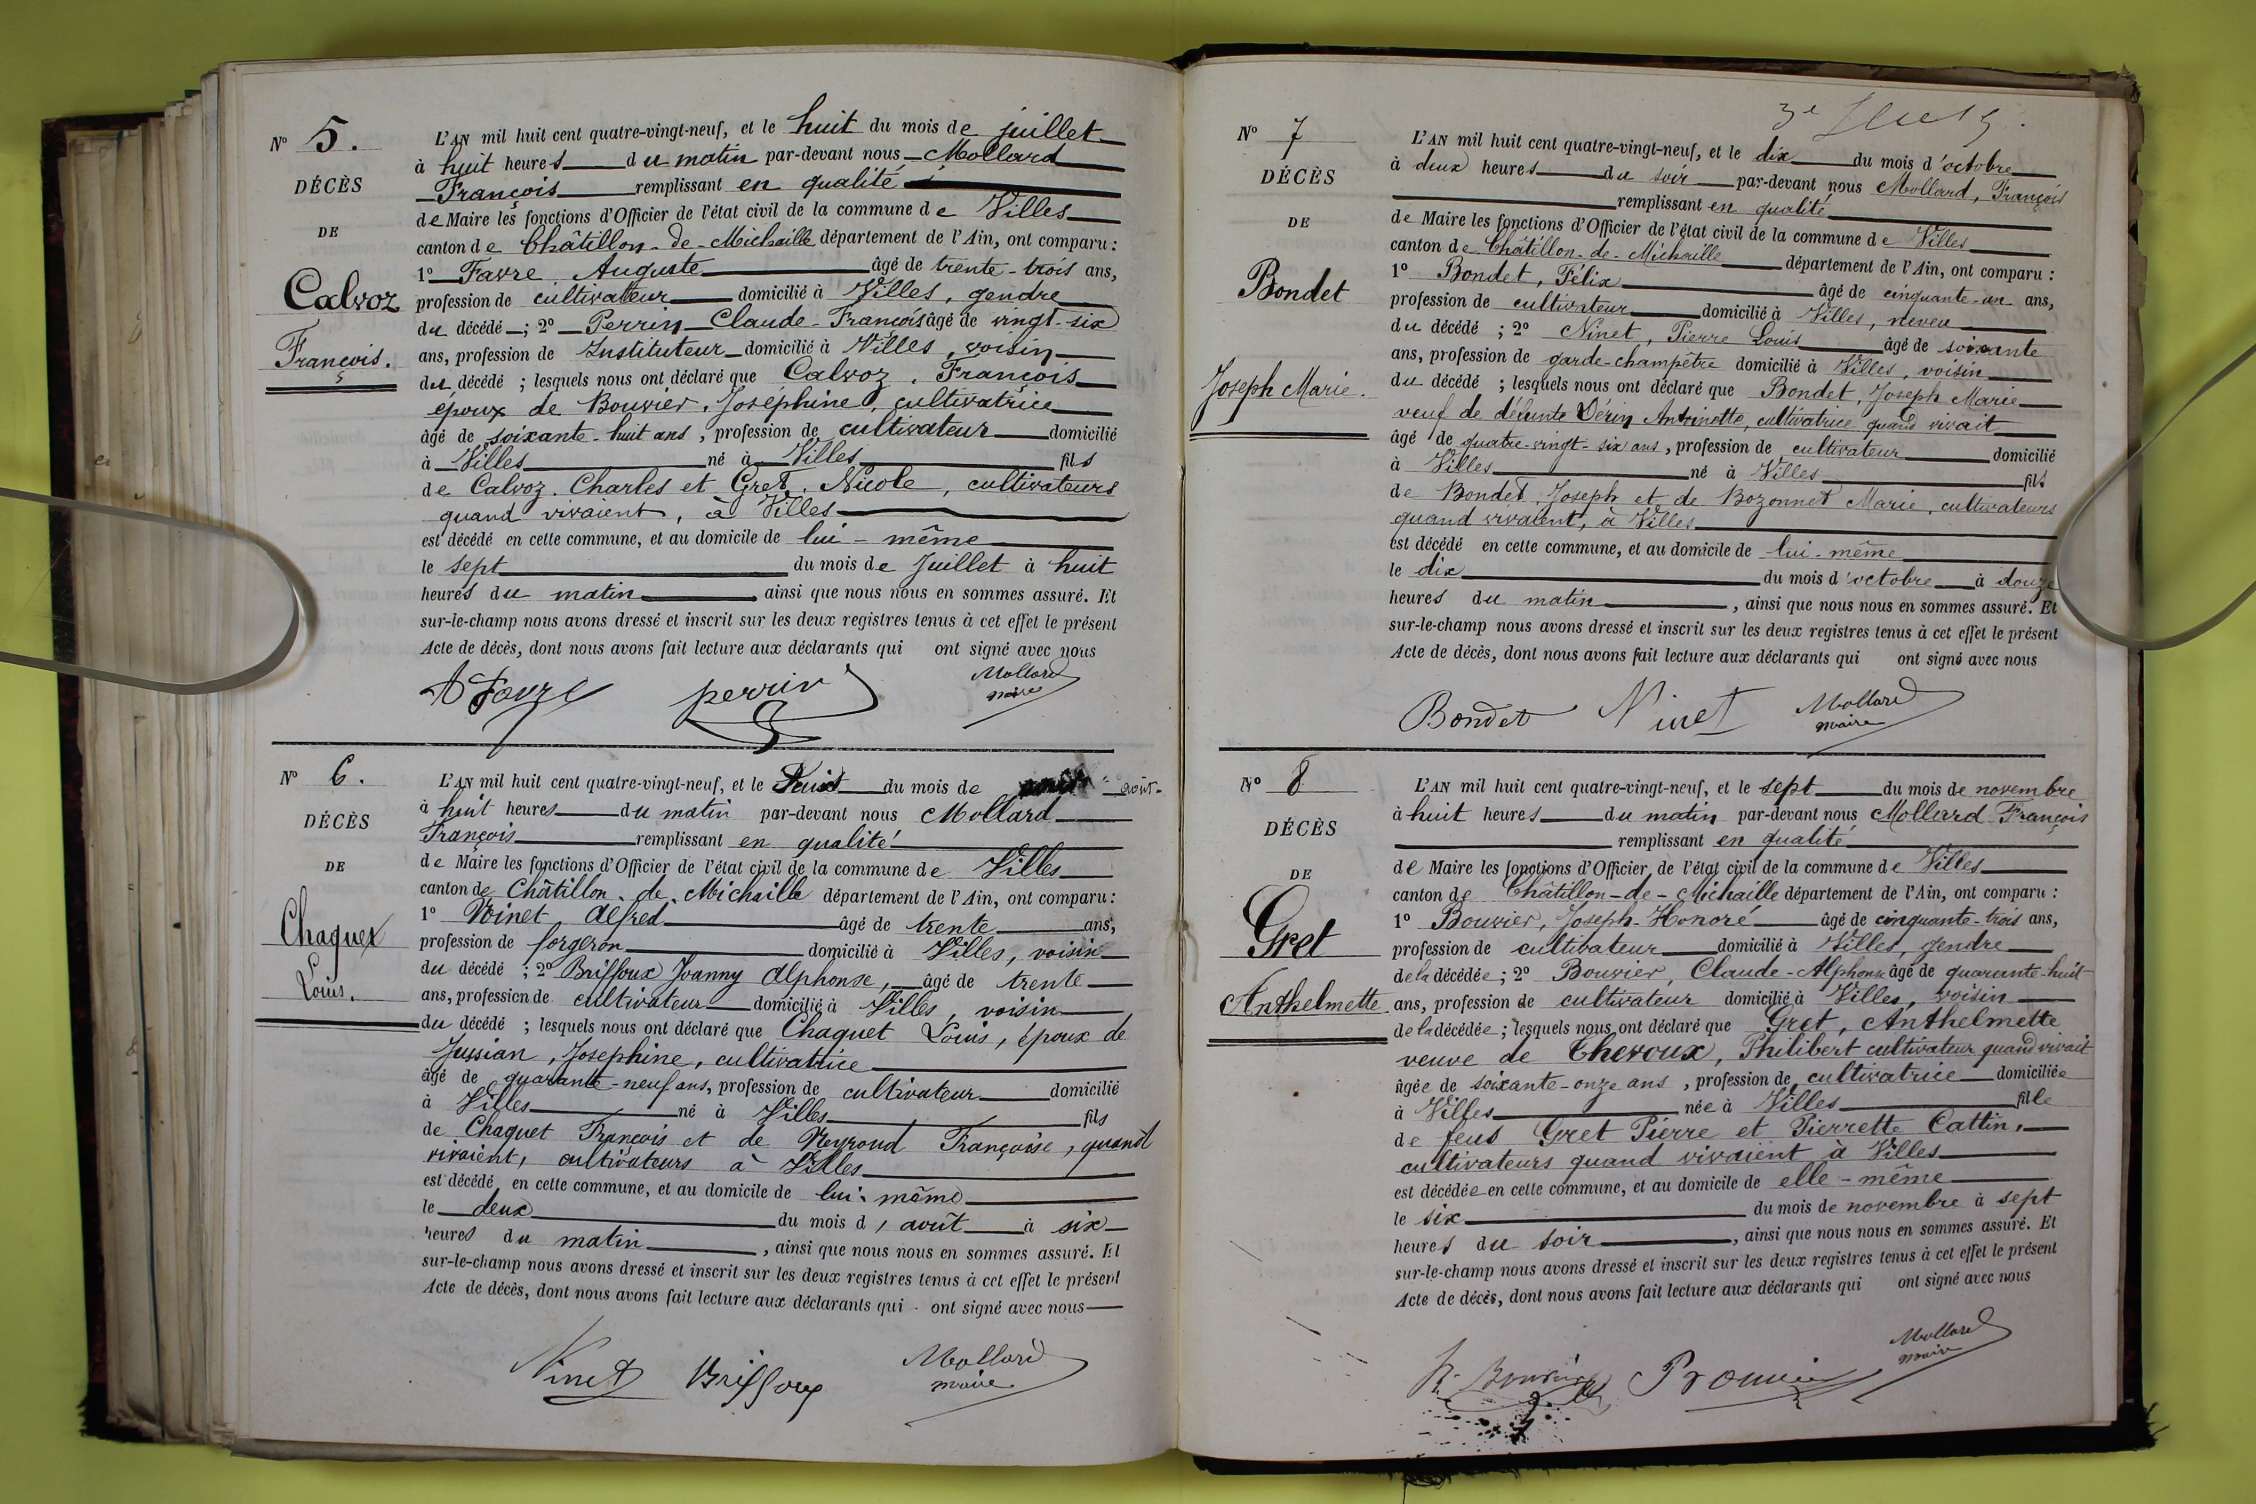 N° 5.
DÉCÈS
DE
Calvoz
François.
L'AN mil huit cent quatre-vingt-neuf, et le huit du mois de juillet
à huit heures du matin par-devant nous Mollard
François remplissant en qualité
de Maire les fonctions d'Officier de l'état civil de la commune de Villes
canton de Châtillon-de-Michaille département de l'Ain, ont comparu :
1° Favre Auguste âgé de trente-trois ans,
profession de cultivateur domicilié à Villes, gendre
du décédé ; 2° Perrin Claude-François âgé de vingt-six
ans, profession de Instituteur domicilié à Villes, voisin
du décédé ; lesquels nous ont déclaré que Calvoz, François
époux de Bouvier, Joséphine, cultivatrice
âgé de soixante-huit ans, profession de cultivateur domicilié
à Villes né à Villes fils
de Calvoz, Charles et Gret, Nicole, cultivateurs
quand vivaient, à Villes
est décédé en cette commune, et au domicile de lui-même
le sept du mois de Juillet à huit
heures du matin ainsi que nous nous en sommes assuré. Et
sur-le-champ nous avons dressé et inscrit sur les deux registres tenus à cet effet le présent
Acte de décès, dont nous avons fait lecture aux déclarants qui ont signé avec nous
A Favre perrin Mollard
maire
N° 6.
DÉCÈS
DE
Chaquet
Louis.
L'AN mil huit cent quatre-vingt-neuf, et le du mois de août
à huit heures du matin par-devant nous Mollard
François remplissant en qualité
de Maire les fonctions d'Officier de l'état civil de la commune de Villes
canton de Châtillon-de-Michaille département de l'Ain, ont comparu :
1° Ninet, Alfred âgé de trente ans,
profession de forgeron domicilié à Villes, voisin
du décédé ; 2° Briffoux Joanny Alphonse, âgé de trente
ans, profession de cultivateur domicilié à Villes, voisin
du décédé ; lesquels nous ont déclaré que Chaquet Louis, époux de
Jussian, Josephine, cultivatrice
âgé de quarante-neuf ans, profession de cultivateur domicilié
à Villes né à Villes fils
de Chaquet François et de Neyroud Françoise, quand
vivaient, cultivateurs à Villes
est décédé en cette commune, et au domicile de lui-même
le deux du mois d'août à six
heures du matin, ainsi que nous nous en sommes assuré. Et
sur-le-champ nous avons dressé et inscrit sur les deux registres tenus à cet effet le présent
Acte de décès, dont nous avons fait lecture aux déclarants qui ont signé avec nous
Ninet Briffoux Mollard
maire
N° 7
DÉCÈS
DE
Bondet
Joseph Marie.
L'AN mil huit cent quatre-vingt-neuf, et le dix du mois d'octobre
à deux heures du soir par-devant nous Mollard, François
remplissant en qualité
de Maire les fonctions d'Officier de l'état civil de la commune de Villes
canton de Châtillon-de-Michaille département de l'Ain, ont comparu :
1° Bondet, Félix âgé de cinquante-un ans,
profession de cultivateur domicilié à Villes, neveu
du décédé ; 2° Ninet, Pierre Louis âgé de soixante
ans, profession de garde-champêtre domicilié à Villes, voisin
du décédé ; lesquels nous ont déclaré que Bondet, Joseph Marie
veuf de défunte Antoinette, cultivatrice quand vivait
âgé de quatre-vingt-six ans, profession de cultivateur domicilié
à Villes né à Villes fils
de Bondet, Joseph et de Bozonnet Marie, cultivateurs
quand vivaient, à Villes
est décédé en cette commune, et au domicile de lui-même
le dix du mois d'octobre à douze
heures du matin, ainsi que nous nous en sommes assuré. Et
sur-le-champ nous avons dressé et inscrit sur les deux registres tenus à cet effet le présent
Acte de décès, dont nous avons fait lecture aux déclarants qui ont signé avec nous
Bondet Ninet Mollard
maire
N° 8
DÉCÈS
DE
Gret
Anthelmette
L'AN mil huit cent quatre-vingt-neuf, et le sept du mois de novembre
à huit heures du matin par-devant nous Mollard François
remplissant en qualité
de Maire les fonctions d'Officier de l'état civil de la commune de Villes
canton de Châtillon-de-Michaille département de l'Ain, ont comparu :
1° Bouvier, Joseph-Honoré âgé de cinquante-trois ans,
profession de cultivateur domicilié à Villes, gendre
de la décédée ; 2° Bouvier, Claude-Alphonse âgé de quarante-huit
ans, profession de cultivateur domicilié à Villes, voisin
de la décédée ; lesquels nous ont déclaré que Gret, Anthelmette
veuve de Cheroux, Philibert cultivateur quand vivait
âgée de soixante-onze ans, profession de cultivatrice domiciliée
à Villes née à Villes fille
de feus Gret Pierre et Pierrette Cattin,
cultivateurs quand vivaient à Villes
est décédée en cette commune, et au domicile de elle-même
le six du mois de novembre à sept
heures du soir, ainsi que nous nous en sommes assuré. Et
sur-le-champ nous avons dressé et inscrit sur les deux registres tenus à cet effet le présent
Acte de décès, dont nous avons fait lecture aux déclarants qui ont signé avec nous
Mollard
maire